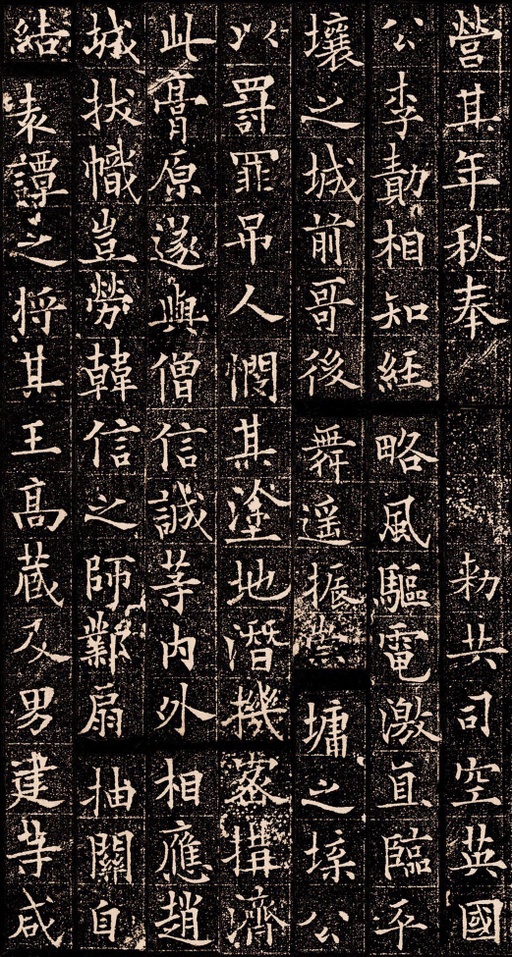 營其年秋奉勅共司空英國
公李勣相知經略風驅電激直臨平
壤之城前哥後舞遥振崇墉之堞公
以罰罪吊人憫其塗地潛機密搆濟
此膏原遂與僧信誠等内外相應趙
城拔幟豈勞韓信之師鄴扇抽關自
結袁譚之將其王高藏及男建等咸